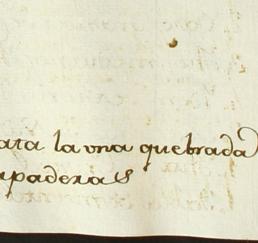 ata la vna quebrada
apaderas